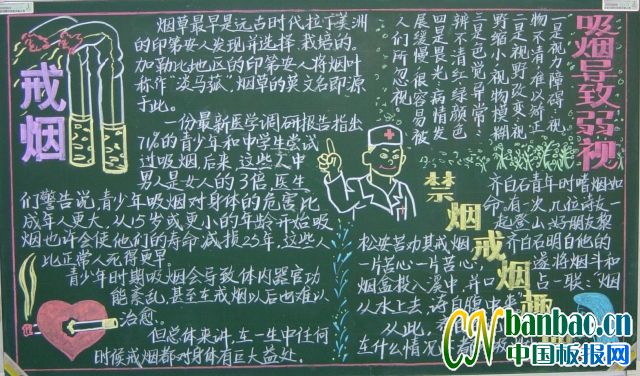 戒烟
烟草最早是远古时代拉丁美洲
的印第安人发现并选择栽培的。
加勒比地区的印第安人将烟叶
称作“淡马菰”,烟草的英文名即源
于此。
一份最新医学调研报告指出
71%的青少年和中学生尝试
过吸烟,后来,这些人中
男人是女人的3倍,医生
们警告说,青少年吸烟对身体的危害比
成年人更大,从15岁或更小的年龄开始吸
烟也许会使他们的寿命减损25年,这些人
比正常人死得更早。
青少年时期吸烟会导致体内器官功
能紊乱,甚至在戒烟以后也难以
治愈。
但总体来讲,在一生中任何
时候戒烟都对身体有巨大益处。
吸烟导致弱视
一是视力障碍,视
物不清难以矫正
二是视野改变,视
野缩小,视物模糊
三是色觉异常:
辨不清红绿颜色
四是畏光,病情发
展缓慢,很容易被
人们所忽视
禁烟戒烟趣
齐白石青年时嗜烟如
命,有一次,几位诗友一
起登山,好朋友黎
松安苦力其戒烟,齐白石明白他的
一片苦心一片苦心,遂将烟斗和
烟盒投入溪中,并口占一联:“烟
从水上去,诗自腹中来
从此,
在什么情况
banbao.cn
中国板报网